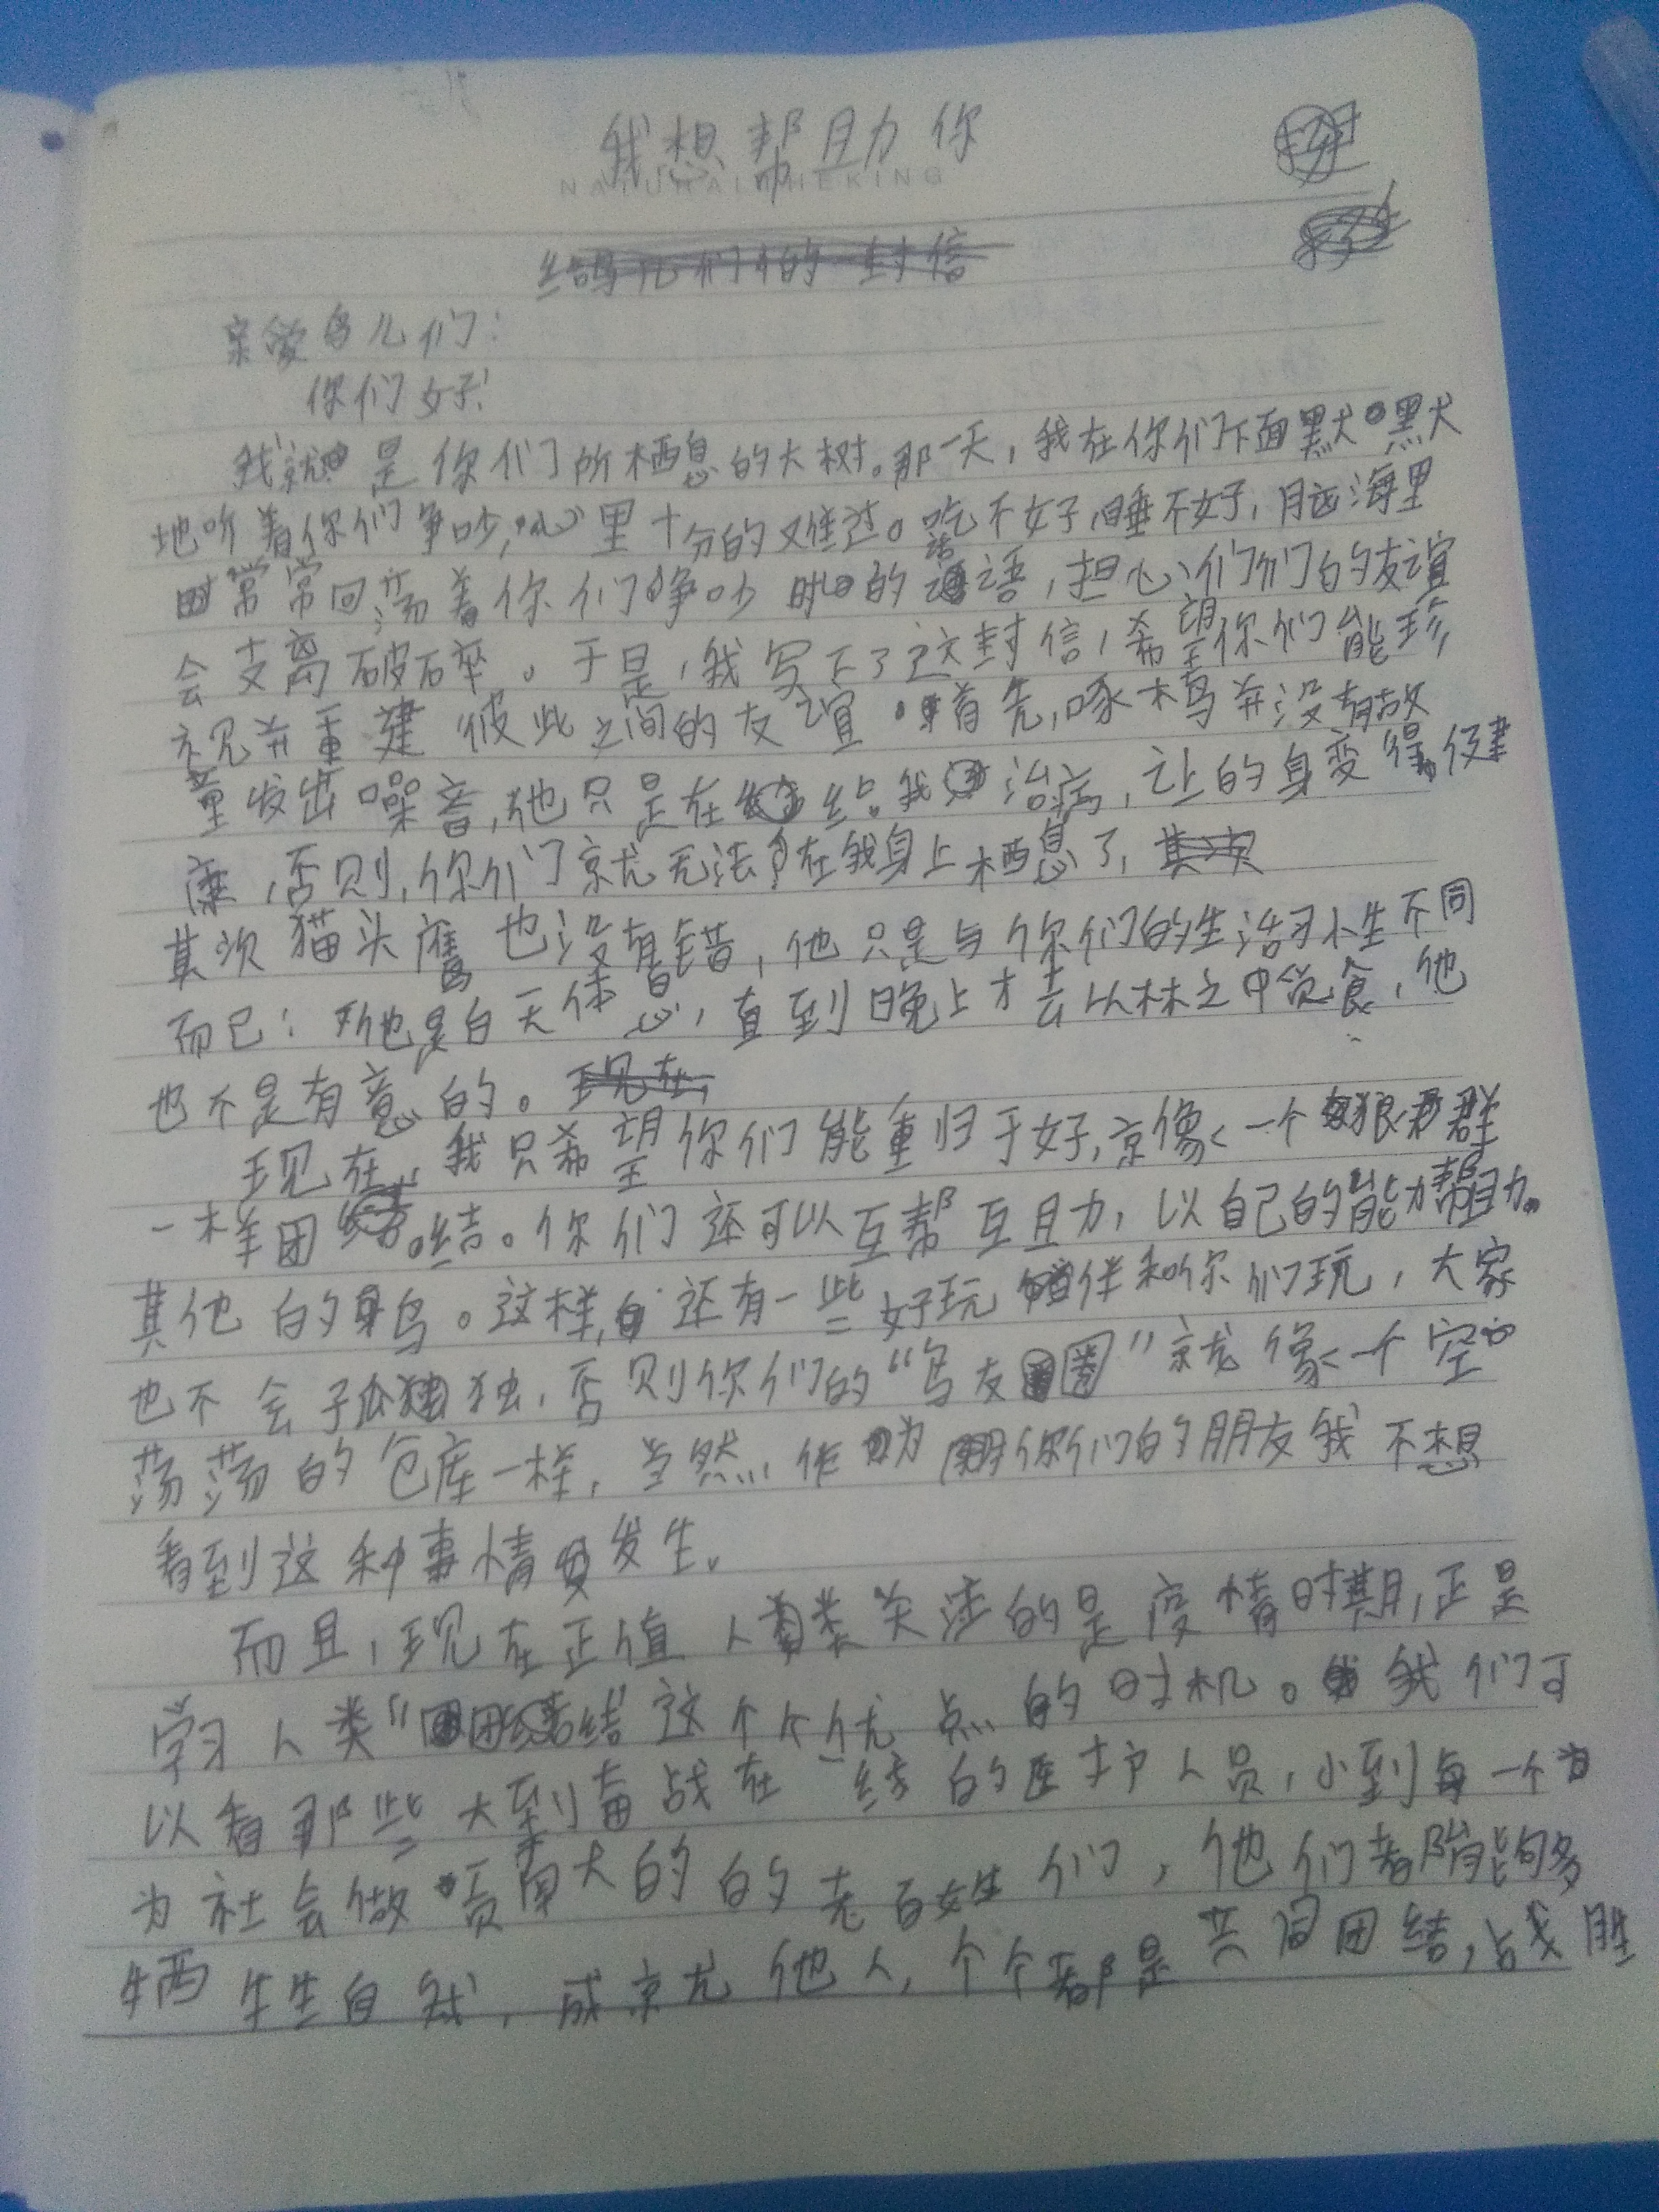 我想帮助你
NATURAL THEKING
给鸟儿们的一封信
亲爱鸟儿们：
你们好！
我就是你们所栖息的大树。那一天，我在你们下面默默
地听着你们争吵，心里十分的难过。吃不好，睡不好，脑海里
常常回荡着你们争吵时的话语，担心你们的友谊
会支离破碎。于是，我写下了这封信，希望你们能珍
视并重建彼此之间的友谊。首先，啄木鸟并没有故
意发出噪音，他只是在给我治病，让的身变得健
康，否则，你们就无法在我身上栖息了，其次
其次猫头鹰也没有错，他只是与你们的生活习小生不同
而已：他是白天休息，直到晚上才去丛林之中觅食，他
也不是有意的。现在，
现在，我只希望你们能重归于好，就像一个狼群
一样团结。你们还可以互帮互助，以自己的能力帮助
其他的鸟。这样，还有一些好玩伴和你们玩，大家
也不会孤独，否则你们的“鸟友圈”就像一个空
荡荡的仓库一样，当然，作为你们的朋友我不想
看到这种事情发生。
而且，现在正值人类关注的是疫情时期，正是
学习人类“团结”这个个优点的时机。我们可
以看那些大到奋战在一线的医护人员，小到每一个
为社会做贡献的的老百姓们，他们都能够
牺牲自我，成就他人，个个都是共同团结，战胜